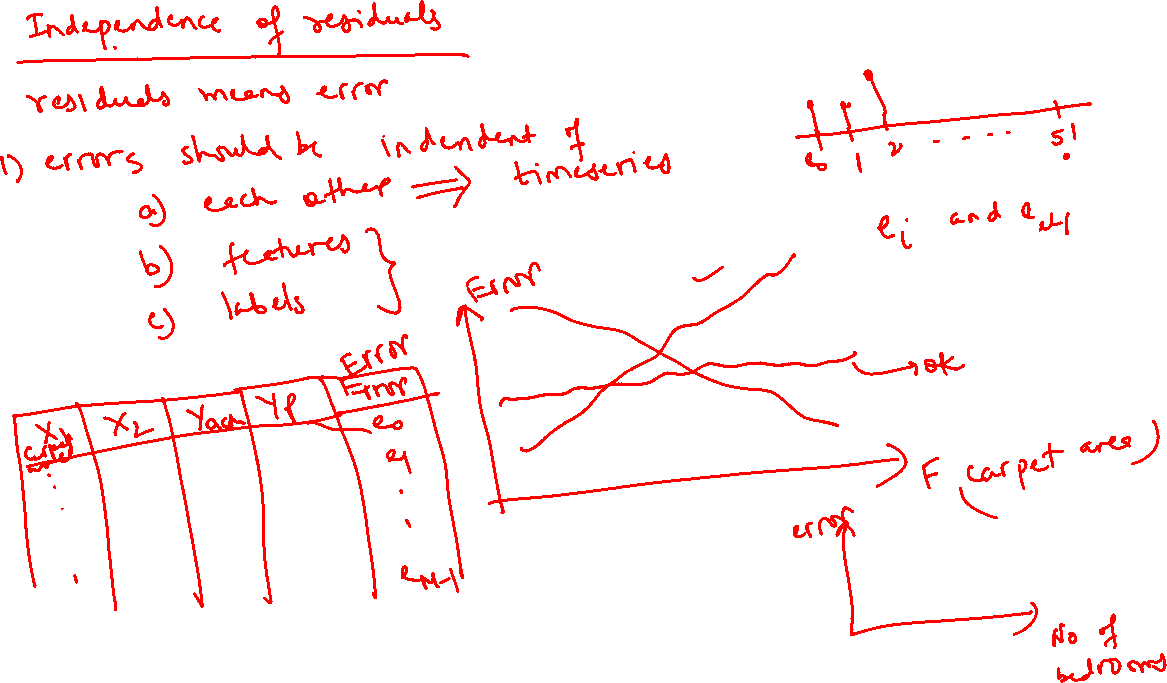 Independence of residuals
residuals means error
1) errors should be indendent of
a) each other ⟹ timeseries
b) features
c) labels
e0 1 2 - - - - 51
ei and ei+1
Error
ok
F (carpet area)
Error
X1 X2 Yact YP Error
carpet
e0
e1
eM-1
error
No of
bedrooms